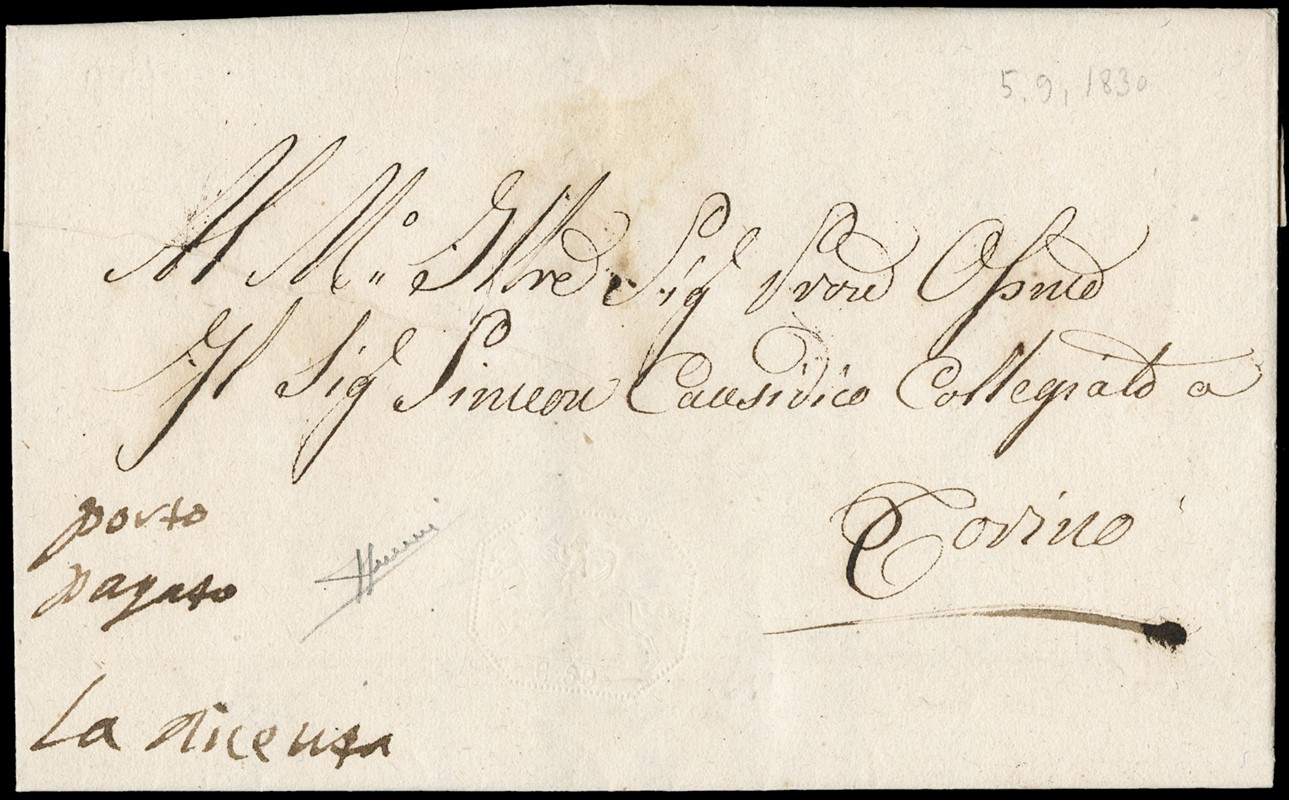 5.9,1830
Al M.º Illre Sig.r Sig.r Prone Ossmo
Il Sig.r Simeon Causidico Collegiato a
Torino
porto
pagato
La Ricevuta